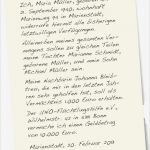 Ich, Maria Müller, geboren am
2. September 1940, wohnhaft
Marienweg 11 in Marienstadt,
widerrufe hiermit alle bisherigen
letztwilligen Verfügungen.
Alleinerben meines gesamten Ver-
mögens sollen zu gleichen Teilen
meine Tochter Marianne Schmidt,
geborene Müller, und mein Sohn
Michael Müller sein.
Meine Nachbarin Johanna Bleib-
treu, die mir in den letzten Jahren
sehr geholfen hat, soll als
Vermächtnis 1.000 Euro erhalten.
Der UNO-Flüchtlingshilfe e.V.,
Wilhelmstr. 42 in 53111 Bonn
vermache ich einen Geldbetrag
von 10.000 Euro.
Marienstadt, 10. Februar 2011